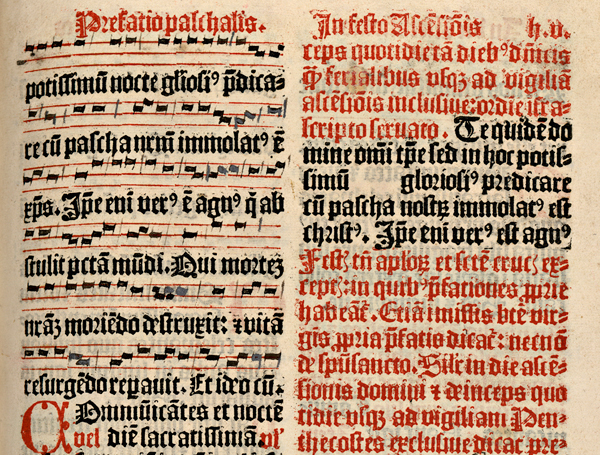 Prefatio paschalis.
potissimū nocte gľiosiꝰ p̄dica-
re cū pascha nr̄m immolatꝰ ē
xp̄s. Ip̄e eni verꝰ ē agnꝰ q̄ ab
stulit pctā mūdi. Qui mortē
nr̄ā moriēdo destruxit: ⁊ vitā
resurgēdo reparauit. Et ideo cū.
Cōmunicātes et nocte
vel diē sacratissimā. vľ
In festo Ascēsiōis h.v.
ceps quotidie tā diebꝰ dn̄icis
ꝙ ferialibus vsqꝫ ad vigiliā
ascēsiōis inclusiue: ordie ifra-
scripto seruato. Te quidē do
mine omi tp̄e sed in hoc potis-
simū gloriosiꝰ predicare
cū pascha nostꝝ immolatꝰ est
christꝰ. Ip̄e eni verꝰ est agnꝰ
Festꝭ tn̄ aploꝝ et sctē crucꝭ ex-
ceptꝭ: in quibꝰ p̄fationes ꝓprie
habeāt̉. Etiā i missis btē vir-
gis ꝓpria p̄fatio dicat̉: necnō
de spū sancto. Silr in die ascē-
sionis domini ⁊ deinceps quo
tidie vsqꝫ ad vigiliam Pen-
thecostes exclusiue dicat̉ pre-